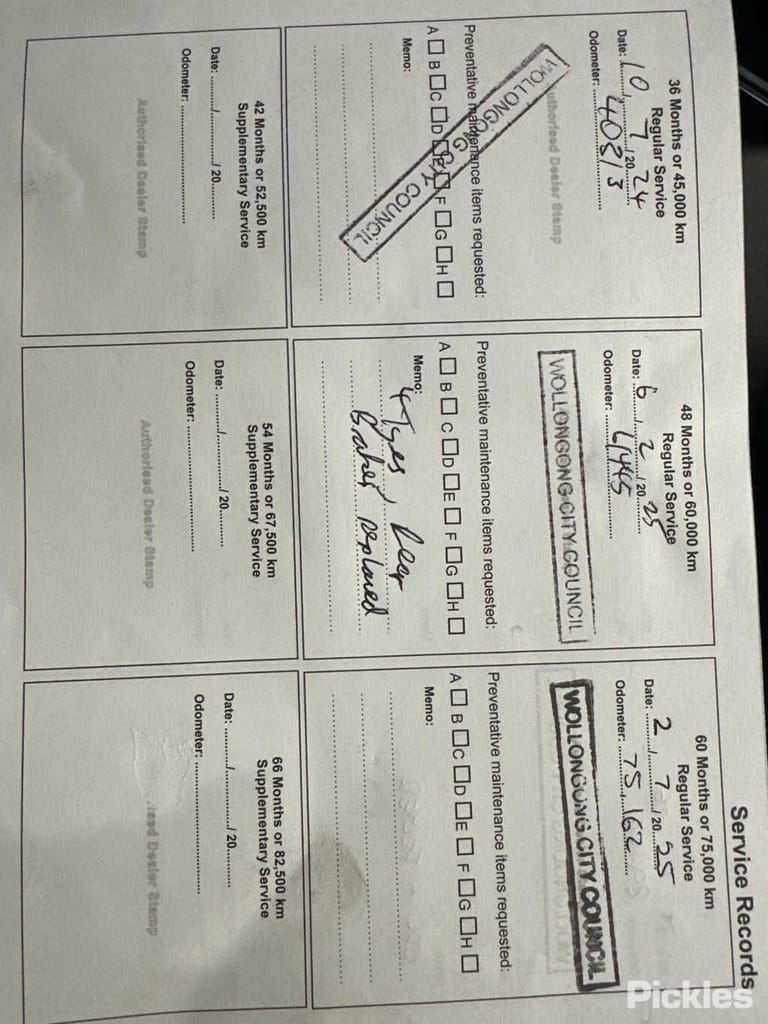 Service Records
36 Months or 45,000 km
Regular Service
Date: 10 / 7 / 20 24
Odometer: 40813
Authorised Dealer Stamp
WOLLONGONG CITY COUNCIL
Preventative maintenance items requested:
A □ B □ C □ D □ E □ F □ G □ H □
Memo:
48 Months or 60,000 km
Regular Service
Date: 6 / 2 / 20 25
Odometer: 61445
WOLLONGONG CITY COUNCIL
Preventative maintenance items requested:
A □ B □ C □ D □ E □ F □ G □ H □
Memo: 4 Tyres, Rear
Brakes replaced
60 Months or 75,000 km
Regular Service
Date: 2 / 7 / 20 25
Odometer: 75,162
WOLLONGONG CITY COUNCIL
Preventative maintenance items requested:
A □ B □ C □ D □ E □ F □ G □ H □
Memo:
42 Months or 52,500 km
Supplementary Service
Date: ........../........../ 20..........
Odometer: ..............................
Authorised Dealer Stamp
54 Months or 67,500 km
Supplementary Service
Date: ........../........../ 20..........
Odometer: ..............................
Authorised Dealer Stamp
66 Months or 82,500 km
Supplementary Service
Date: ........../........../ 20..........
Odometer: ..............................
Dealer Stamp
Pickles